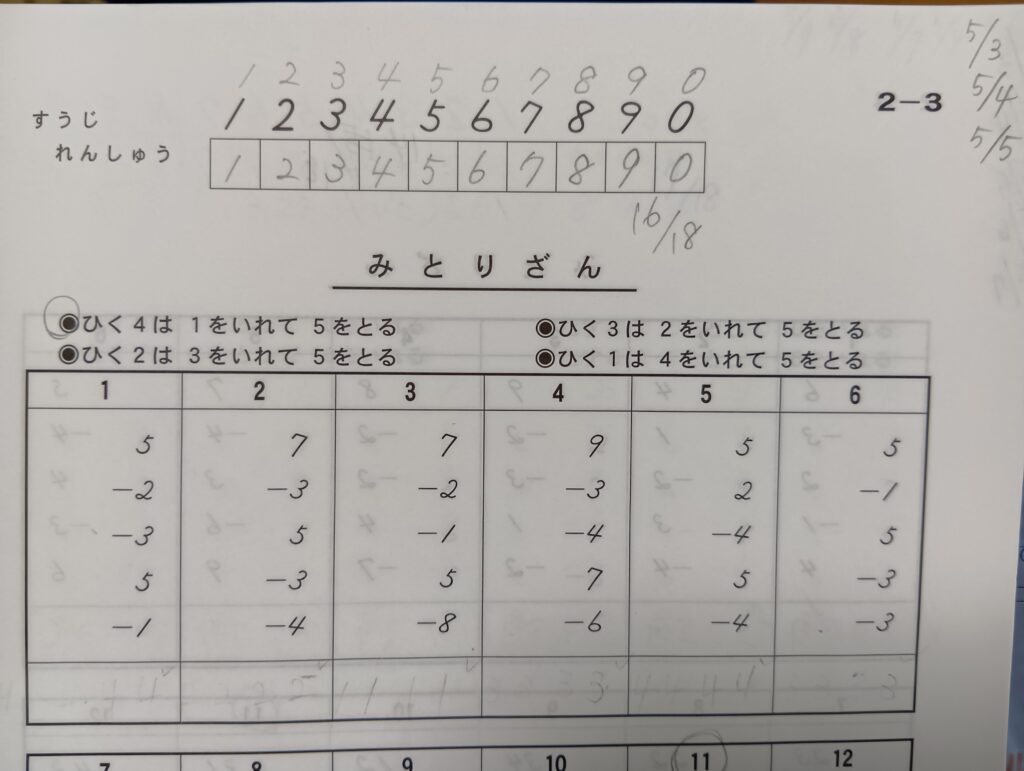 5/3
5/4
5/5
1 2 3 4 5 6 7 8 9 0
すうじ 1 2 3 4 5 6 7 8 9 0
2-3
れんしゅう 1 2 3 4 5 6 7 8 9 0
16/18
みとりざん
◉ひく4は 1をいれて 5をとる ◉ひく3は 2をいれて 5をとる
◉ひく2は 3をいれて 5をとる ◉ひく1は 4をいれて 5をとる
1 2 3 4 5 6
5 7 7 9 5 5
-2 -3 -2 -3 2 -1
-3 5 -1 -4 -4 5
5 -3 5 7 5 -3
-1 -4 -8 -6 -4 -3
3 4 3
7 8 9 10 11 12